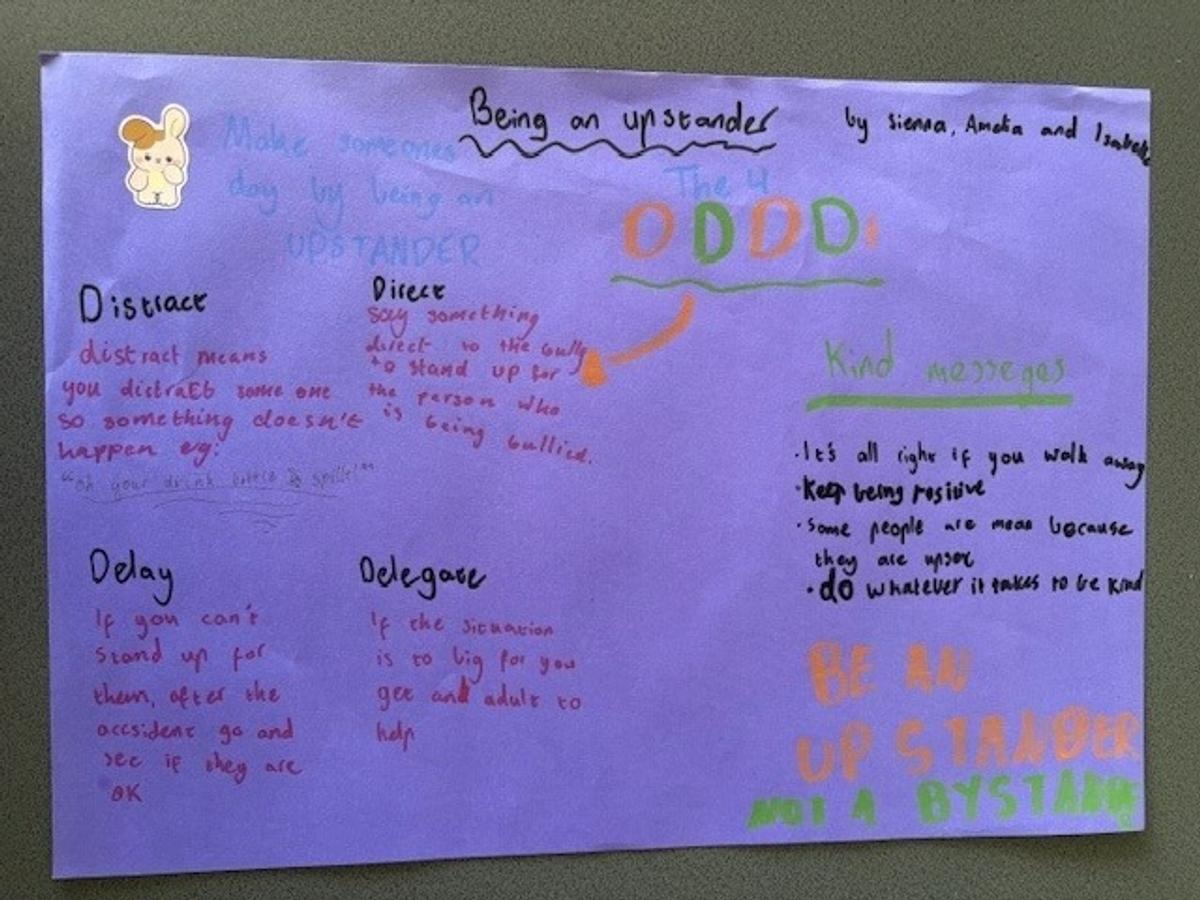 Being an upstander
by sienna, Amelia and Isabelle
Make someones
day by being an
UPSTANDER
The 4
D D D D!
Distract
distract means
you distract some one
so something doesn't
happen eg:
"oh your drink bottle spilled"
Direct
say something
direct to the bully
to stand up for
the person who
is being bullied.
Kind messeges
·It's all right if you walk away
·Keep being positive
·Some people are mean because
they are upset
·do whatever it takes to be kind
Delay
If you can't
stand up for
them, after the
accsident go and
see if they are
OK
Delegate
If the situation
is to big for you
get and adult to
help
BE AN
UP STANDER
NOT A BYSTANDER